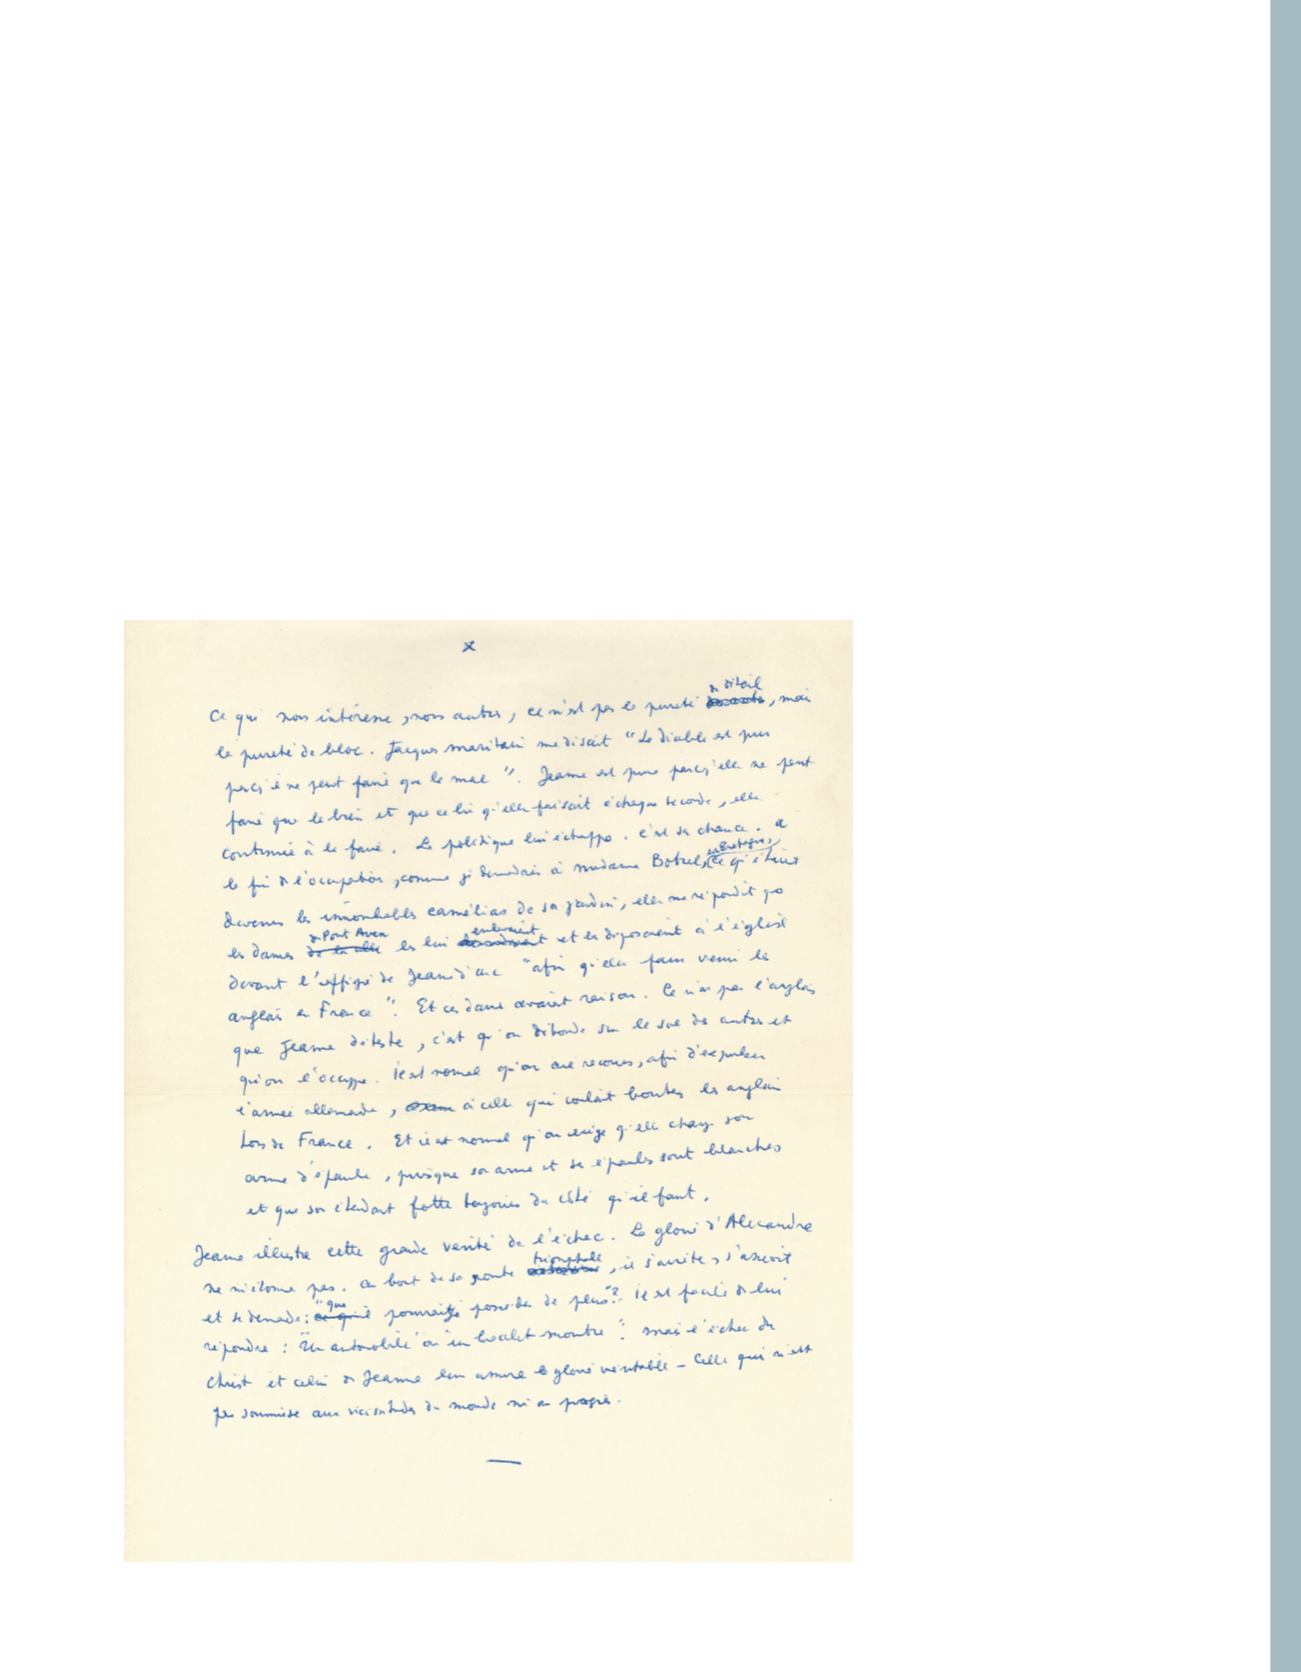 x
de détail
Ce qui nous intéresse, nous autres, ce n'est pas la pureté, mais
la pureté de bloc. Jacques Maritain me disait "Le diable est pur
parcq il ne peut faire que le mal". Jeanne est pure parcq'elle ne peut
faire que le bien et que celui q'elle faisait à chaque seconde, elle
continue à le faire. La politique lui échappe. C'est sa chance. A
en Bretagne,
la fin de l'occupation, comme je demandais à madame Botrel, ce q'étaient
devenus les innombrables camélias de son jardin, elle me répondit que
de Pont Aven enlevaient
les dames de la ville les lui et les disposaient à l'église
devant l'effigie de Jeanne d'arc "afin q'elle fasse venir les
anglais en France". Et ces dames avaient raison. Ce n'est pas l'anglais
que Jeanne déteste, c'est qu'on déborde sur le sol des autres et
qu'on l'occupe. Il est normal qu'on ait recours, afin d'expulser
l'armée allemande, à celle qui voulait bouter les anglais
hors de France. Et il est normal q'on exige q'elle change son
arme d'épaule, puisque son arme et ses épaules sont blanches
et que son étendard flotte toujours du côté qu'il faut.
Jeanne illustre cette grande vérité de l'échec. La gloire d'Alexandre
triomphale
ne m'étonne pas. Au bout de sa route, il s'arrête, s'asseoit
"que
et se demande: ce qu'il pourrais-je posséder de plus"? Il est facile de lui
répondre: "Un automobile ou un bracelet montre". Mais l'échec du
Christ et celui de Jeanne leur assure la gloire véritable – Celle qui n'est
pas soumise aux vicissitudes du monde ni au progrès.